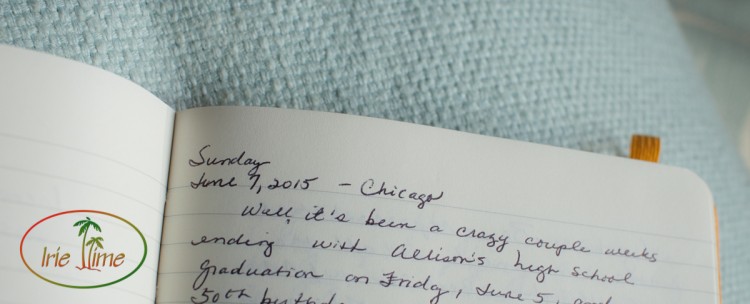 Sunday
June 7, 2015 - Chicago
Well, it's been a crazy couple weeks
ending with Allison's high school
graduation on Friday, June 5, and
50th birthd
Irie Time